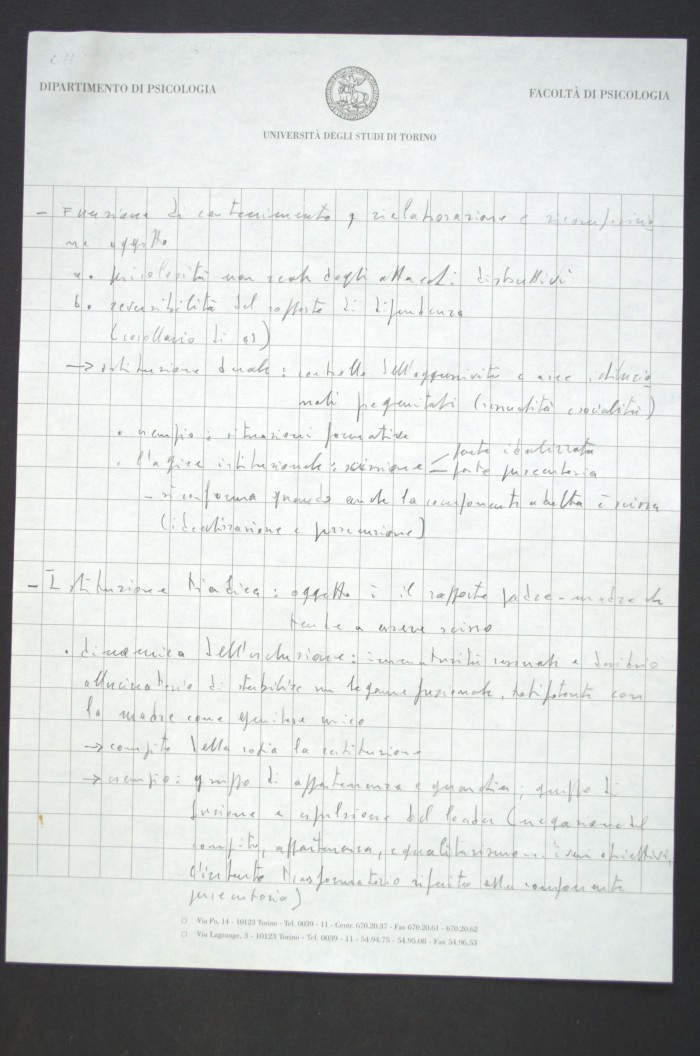 DIPARTIMENTO DI PSICOLOGIA
FACOLTÀ DI PSICOLOGIA
UNIVERSITÀ DEGLI STUDI DI TORINO
- Funzione di contenimento, rielaborazione e
ne oggetto
a. pericolosità non reale degli attacchi distruttivi
b. reversibilità del rapporto di dipendenza
(corollario di a)
→ istituzione duale: controllo dell'aggressività e aree istituzio
nali pregenitali (sessualità e socialità)
• esempio: situazioni formative
• l'agire istituzionale: scissione parte idealizzata
parte persecutoria
- si conforma quando anche la componente adulta è scissa
(idealizzazione e persecuzione)
- Istituzione triadica: oggetto è il rapporto padre-madre che
tende a essere scisso
• dinamica dell'esclusione: immaturità sessuale e desiderio
allucinatorio di stabilire un legame fusionale, con
la madre come genitore unico
→ compito della la istituzione
→ esempio: gruppo di appartenenza e guardia; gruppo di
fusione e espulsione del leader (negazione del
compito, appartenenza, egualitarismo obiettivi,
trasformatorio alla componente
persecutoria)
□ Via Po, 14 - 10123 Torino - Tel. 0039 - 11 - Centr. 670.20.37 - Fax 670.20.61 - 670.20.62
□ Via Lagrange, 3 - 10123 Torino - Tel. 0039 - 11 - 54.94.75 - 54.95.08 - Fax 54.96.53